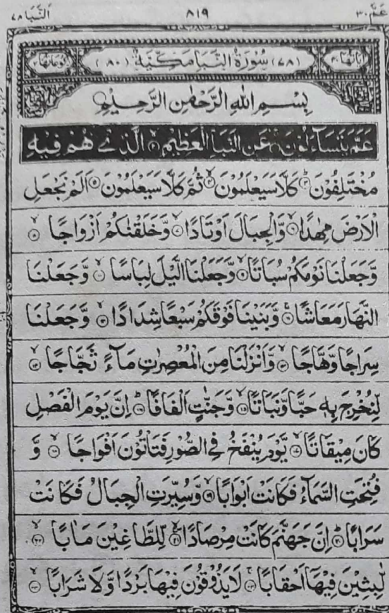 عَمَّ ٣٠ ٨١٩ النَّبَا ٧٨
اٰيَاتُهَا ٤٠ (٧٨) سُوْرَةُ النَّبَاِ مَكِّيَّةٌ (٨٠) رُكُوْعَاتُهَا ٢
بِسْمِ اللهِ الرَّحْمٰنِ الرَّحِيْمِ
عَمَّ يَتَسَآءَلُوْنَ ۚ عَنِ النَّبَاِ الْعَظِيْمِ ۙ الَّذِيْ هُمْ فِيْهِ
مُخْتَلِفُوْنَ ؕ كَلَّا سَيَعْلَمُوْنَ ۙ ثُمَّ كَلَّا سَيَعْلَمُوْنَ ۞ اَلَمْ نَجْعَلِ
الْاَرْضَ مِهٰدًا ۙ وَّالْجِبَالَ اَوْتَادًا ۙ وَّخَلَقْنٰكُمْ اَزْوَاجًا ۙ
وَّجَعَلْنَا نَوْمَكُمْ سُبَاتًا ۙ وَّجَعَلْنَا الَّيْلَ لِبَاسًا ۙ وَّجَعَلْنَا
النَّهَارَ مَعَاشًا ۪ وَّبَنَيْنَا فَوْقَكُمْ سَبْعًا شِدَادًا ۙ وَّجَعَلْنَا
سِرَاجًا وَّهَّاجًا ۪ وَّاَنْزَلْنَا مِنَ الْمُعْصِرٰتِ مَآءً ثَجَّاجًا ۙ
لِّنُخْرِجَ بِهٖ حَبًّا وَّنَبَاتًا ۙ وَّجَنّٰتٍ اَلْفَافًا ؕ اِنَّ يَوْمَ الْفَصْلِ
كَانَ مِيْقَاتًا ۙ يَّوْمَ يُنْفَخُ فِي الصُّوْرِ فَتَاْتُوْنَ اَفْوَاجًا ۙ وَّ
فُتِحَتِ السَّمَآءُ فَكَانَتْ اَبْوَابًا ۙ وَّسُيِّرَتِ الْجِبَالُ فَكَانَتْ
سَرَابًا ؕ اِنَّ جَهَنَّمَ كَانَتْ مِرْصَادًا ۪ لِّلطَّاغِيْنَ مَاٰبًا ۙ
لّٰبِثِيْنَ فِيْهَاۤ اَحْقَابًا ۚ لَا يَذُوْقُوْنَ فِيْهَا بَرْدًا وَّلَا شَرَابًا ۙ